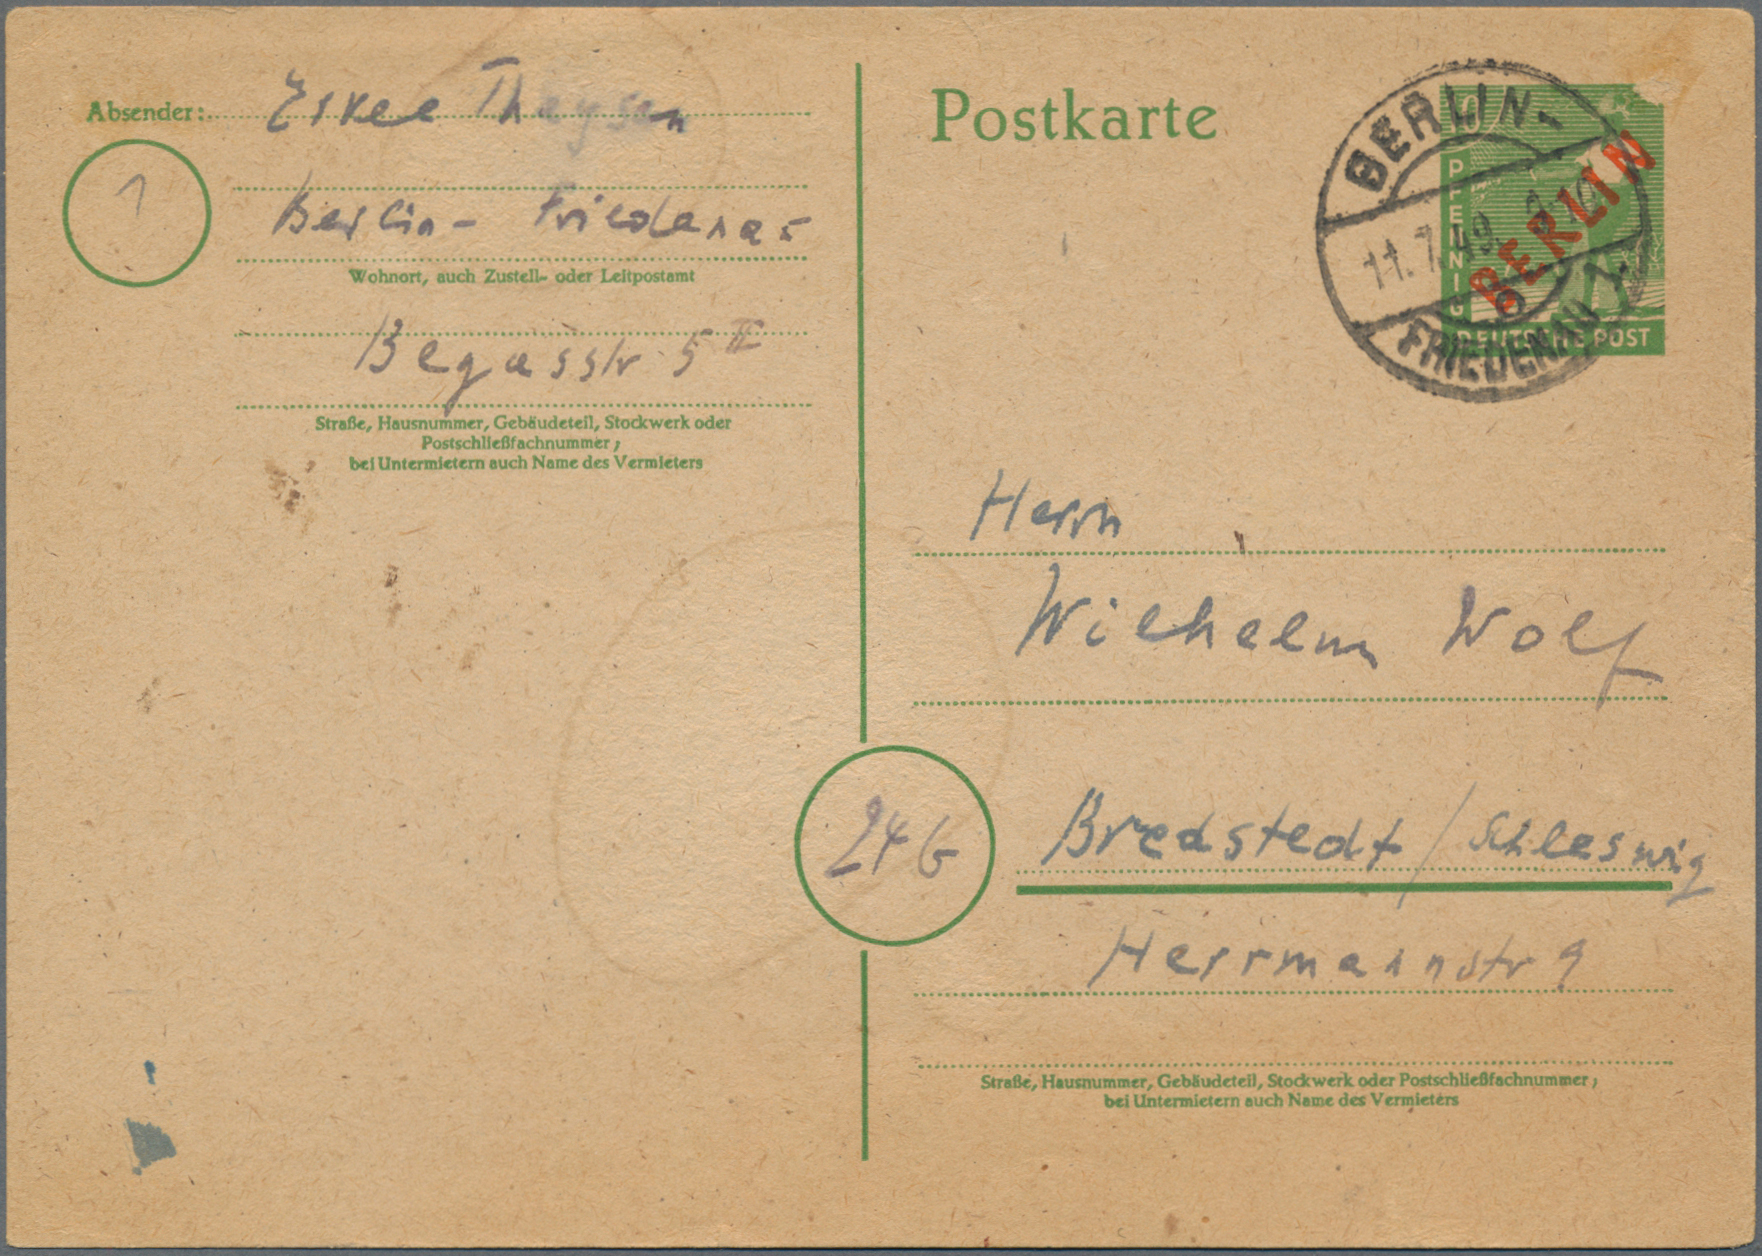 Absender: Theysen
1
Berlin- Friedenau
Wohnort, auch Zustell- oder Leitpostamt
Begasstr 5 II
Straße, Hausnummer, Gebäudeteil, Stockwerk oder
Postschließfachnummer;
bei Untermietern auch Name des Vermieters
Postkarte
10
PFENNIG
DEUTSCHE POST
BERLIN
BERLIN-
11.7.49.
FRIEDENAU 1
Herrn
Wilhelm Wolf
24b
Bredstedt / Schleswig
Herrmannstr 9
Straße, Hausnummer, Gebäudeteil, Stockwerk oder Postschließfachnummer;
bei Untermietern auch Name des Vermieters